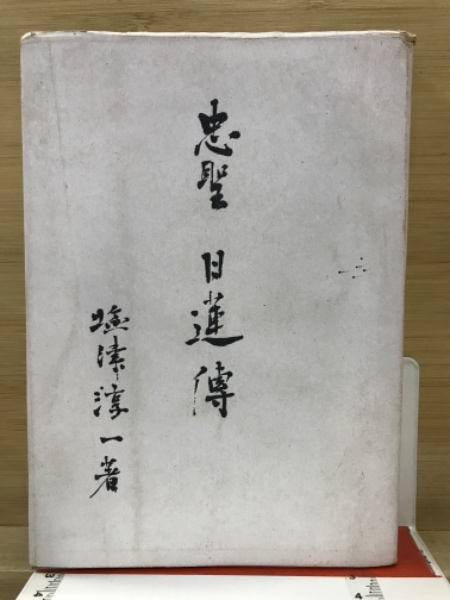 忠聖 日蓮傳
塩津淳一著